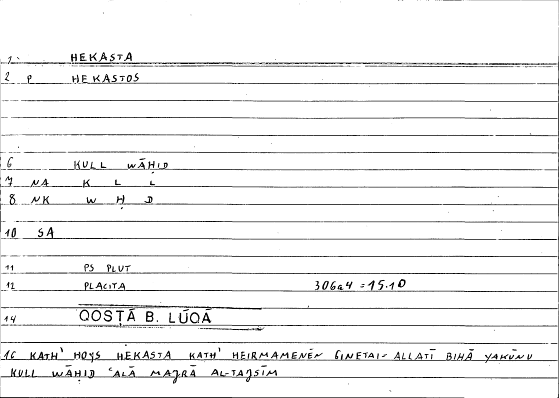 1 HEKASTA
2 P HEKASTOS
6 KULL WĀḤID
7 NA K L L
8 NK W Ḥ D
10 SA
11 PS PLUT
12 PLACITA 306a4 = 15.10
14 QOSṬĀ B. LŪQĀ
16 KATH' HOYS HEKASTA KATH' HEIRMAMENĒN GINETAI - ALLATĪ BIHĀ YAKŪNU
KULL WĀḤID ʿALĀ MAǦRĀ AL-TAǦSĪM